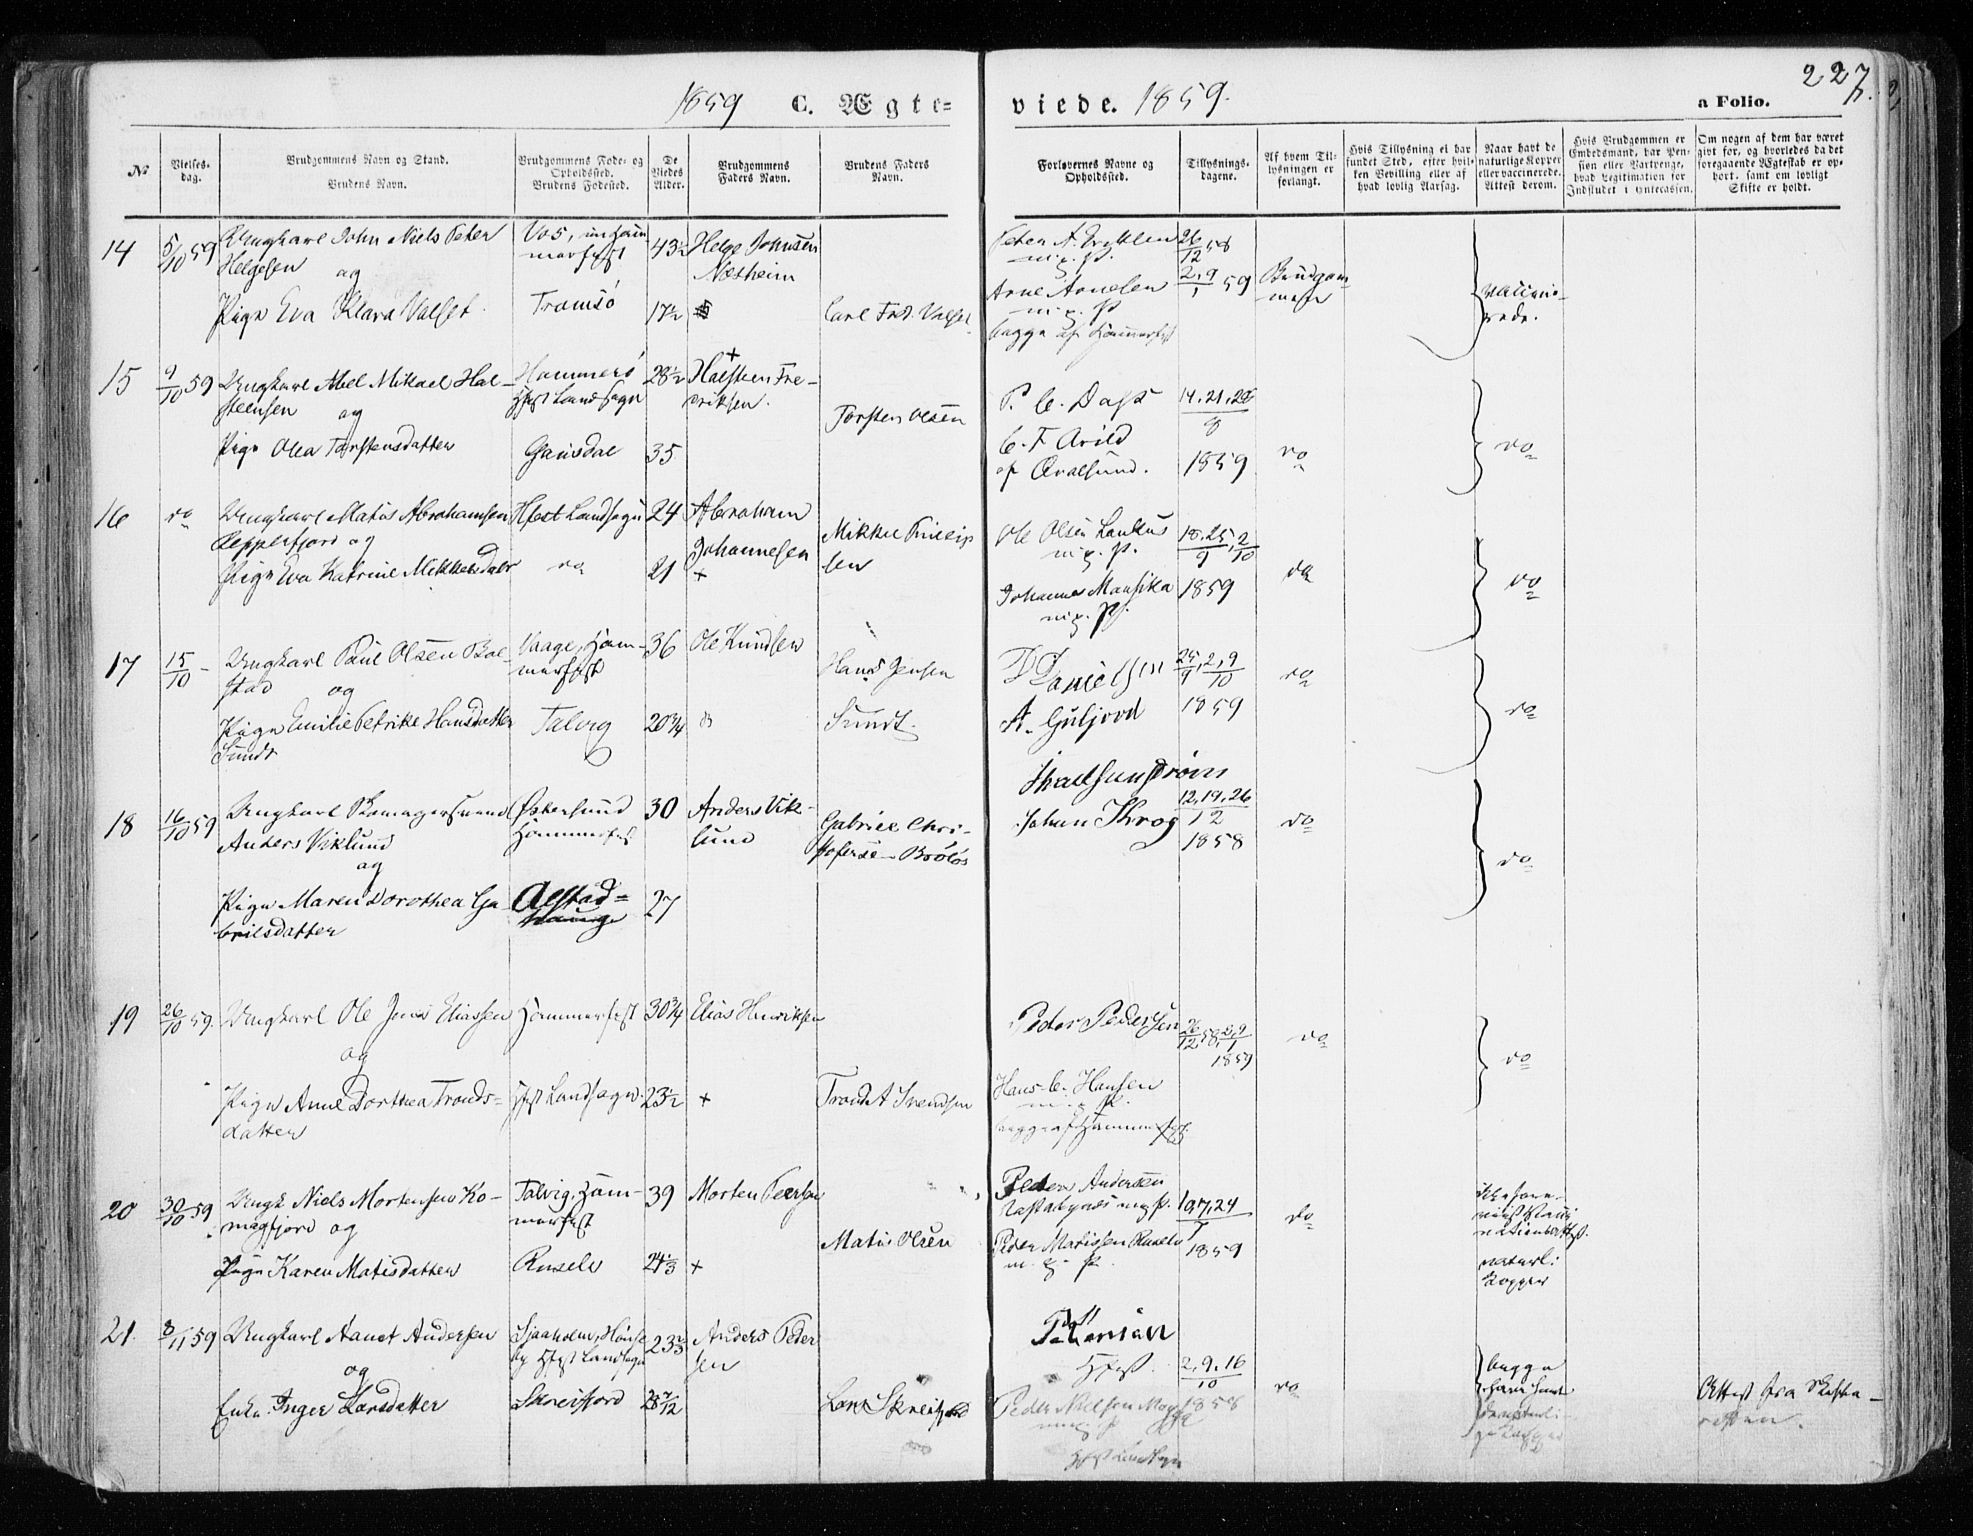 1859 C. Ægte=
viede. 1859.
a Folio.
227.
No
Vielses-
dag.
Brudgommens Navn og Stand.
Brudens Navn.
Brudgommens Føde- og
Opholdssted.
Brudens Fødested.
De
Viedes
Alder.
Brudgommens
Faders Navn.
Brudens Faders
Navn.
Forlovernes Navne og
Opholdssted.
Tillysnings-
dagene.
Af hvem Til-
lysningen er
forlangt.
Hvis Tillysning ei har
fundet Sted, efter hvil-
ken Bevilling eller af
hvad lovlig Aarsag.
Naar havt de
naturlige Kopper
eller vaccinerede.
Attest derom.
Hvis Brudgommen er
Embedsmand, har Pen-
sion eller Vartpenge,
hvad Legitimation for
Indskudet i Enkecassen.
Om nogen af dem har været
gift før, og hvorledes da det
foregaaende Ægteskab er op-
hørt, samt om lovligt
Skifte er holdt.
14
5/10 59
Ungkarl John Niels Peter
Helgesen og
Pige Eva Klara Valset
Vos,
Tromsø
43½
17½
Helge Johnsen
Næsheim
Carl Fred. Valset
Arne Arnesen
m. p. P.
begge af Hammerfest
26/12 58
2,9/1 59
Brudgom-
men
vaccine-
rede.
15
9/10 59
Ungkarl Abel Mikael Hal-
steensen og
Pige Olea Torstensdatter
Hammerø
Hfest Landsogn
Gausdal
28½
35
Halsteen Fre-
driksen.
Torsten Olsen
C. F. Arild
af Qvalsund.
14, 21, 28
8
1859
do
do
16
do
Ungkarl Matis Abrahamsen
Repperfjord og
Pige Eva Katrine Mikkelsdatr
Hfest Landsogn
do
24
21
Abraham
Johannesen
+
Mikkel
sen
Ole Olsen
m. p. P.
Johannes
m. p. P.
18, 25/9, 2/10
1859
do
do
17
15/10 -
Ungkarl Paul Olsen Bal-
stad og
Pige Emilie Petrike Hansdatter
Sundt
Vaage, Ham-
merfest
Talvig
36
20¾
Ole Knudsen
Hans Jensen
Sundt.
Danielsen
A. Guljord
25/9, 2,9/10
1859
do
do
18
16/10 59
Ungkarl Komagersvend
Anders Viklund
og
Pige Maren Dorothea Ga-
brilsdatter
Østersund
Hammerfest
Alstad=
haug
30
27
Anders Vik-
lund
Gabriel Chri-
stofersen
Johan Krog
12, 19, 26
12
1858
do
do
19
26/10 59.
Ungkarl Ole Jens Eliassen
og
Pige Anne Dorthea Tronds-
datter
Hammerfest
Hfest Landsogn.
30¾
23½
Elias Henriksen
+
Trond A Svendsen
Peder Pedersen
Hans C. Hansen
m. p. P.
begge af Hammerfest.
26/12 58, 2,9/1
1859
do
do
20
30/10 59
Ungk Niels Mortensen Ko-
magfjord og
Pige Karen Matisdatter
Talvig, Ham-
merfest
39
24⅓
Morten Peersen
+
Matis Olsen
Peder Andersen
Peder Matissen
m. p. P.
10, 17, 24
1859
do
naturl:
Kopper
21.
8/11 59
Ungkarl Aanet Andersen
og
Enke. Inger Larsdatter
Hfest Landsogn
Skreifjord
23⅔
28 7/12
Anders Peder
sen
Lars Skreifjord
Hfest.
Peder Nielsen
Hfest Landsogn
2, 9, 16
10
1858
do
begge
Attest fra Skifte-
retten.